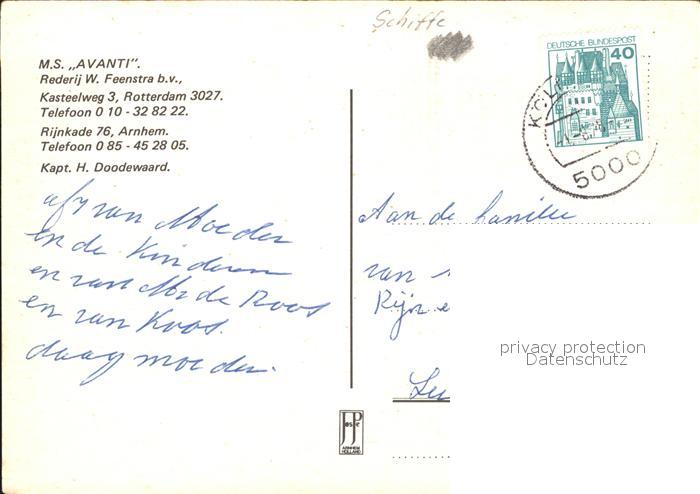 Schiffe
M.S. „AVANTI".
Rederij W. Feenstra b.v.,
Kasteelweg 3, Rotterdam 3027.
Telefoon 0 10 - 32 82 22.
Rijnkade 76, Arnhem.
Telefoon 0 85 - 45 28 05.
Kapt. H. Doodewaard.
van Moeder
en de Kinderen
en van de Roos
en van Koos.
daag moeder.
DEUTSCHE BUNDESPOST
40
KÖLN
5000
Aan de familie
van
Rijn
privacy protection
Datenschutz
JosPé
ARNHEM
HOLLAND